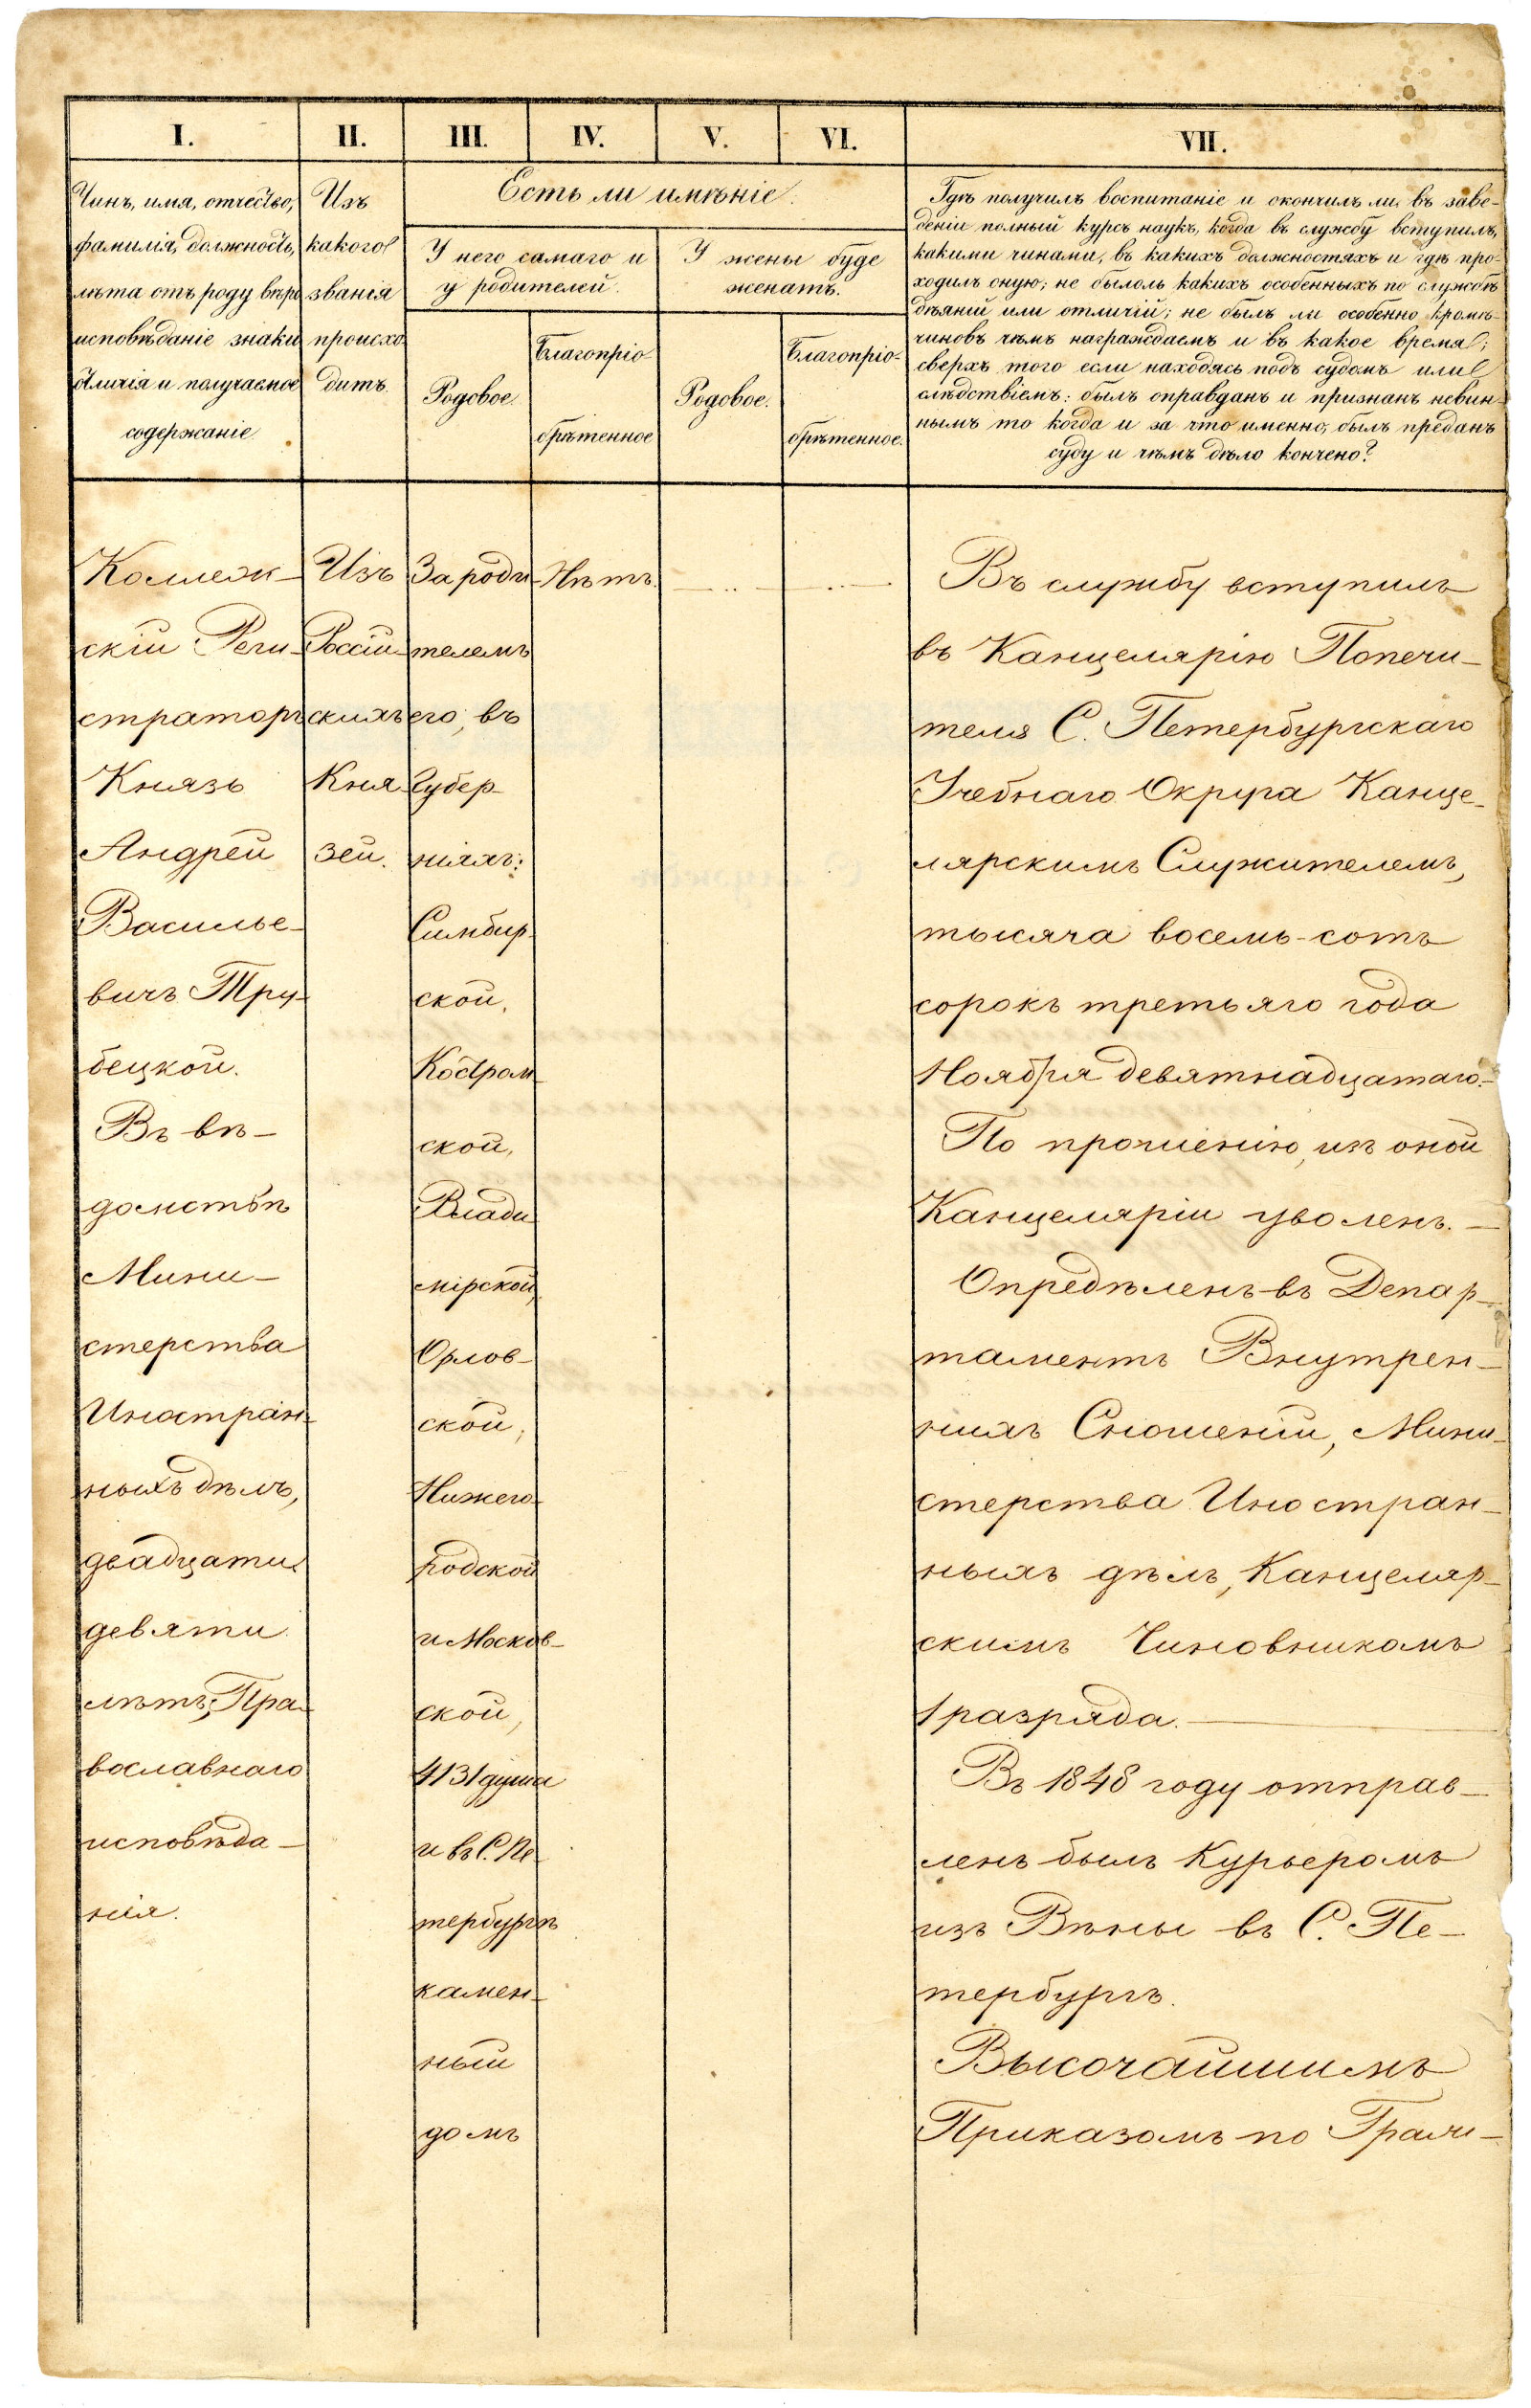 I.
II.
III.
IV.
V.
VI.
VII.
Чинъ, имя, отчество,
фамилія, должность,
лѣта отъ роду вѣро
исповѣданіе знаки
отличія и получаемое
содержаніе.
Изъ
какого
званія
происхо
дитъ.
Есть ли имѣніе.
У него самаго и
у родителей.
У жены буде
женатъ.
Родовое.
Благопріо-
брѣтенное
Родовое.
Благопріо-
брѣтенное.
Гдѣ получилъ воспитаніе и окончилъ ли въ заве-
деніи полный курсъ наукъ, когда въ службу вступилъ,
какими чинами, въ какихъ должностяхъ и гдѣ про-
ходилъ оную; не былоль какихъ особенныхъ по службѣ
дѣяній или отличій; не былъ ли особенно кромѣ
чиновъ чѣмъ награждаемъ и въ какое время;
сверхъ того если находясь подъ судомъ или
слѣдствіемъ: былъ оправданъ и признанъ невин-
нымъ то когда и за что именно, былъ преданъ
суду и чѣмъ дѣло кончено?
Коллеж-
скій Реги-
страторъ
Князь
Андрей
Василье-
вичъ Тру-
бецкой.
Въ вѣ-
домствѣ
Мини-
стерства
Иностран-
ныхъ дѣлъ,
двадцати
девяти
лѣтъ, Пра-
вославнаго
исповѣда-
нія.
Изъ
Россій-
скихъ
Кня-
зей.
За роди-
телемъ
его, въ
Губер-
ніяхъ:
Симбир-
ской,
Костром-
ской,
Влади-
мірской,
Орлов-
ской,
Нижего-
родской
и Москов-
ской,
4131 душа
и въ С. Пе-
тербургѣ
камен-
ный
домъ
Нѣтъ.
Въ службу вступилъ
въ Канцелярію Попечи-
теля С. Петербургскаго
Учебнаго Округа Канце-
лярскимъ Служителемъ,
тысяча восемь-сотъ
сорокъ третьяго года
Ноября девятнадцатаго.-
По прошенію, изъ оной
Канцеляріи уволенъ. -
Опредѣленъ въ Депар-
таментъ Внутрен-
нихъ Сношеній, Мини-
стерства Иностран-
ныхъ дѣлъ, Канцеляр-
скимъ Чиновникомъ
1 разряда.-
Въ 1848 году отправ-
ленъ былъ Курьеромъ
изъ Вѣны въ С. Пе-
тербургъ.
Высочайшимъ
Приказомъ по Граж-